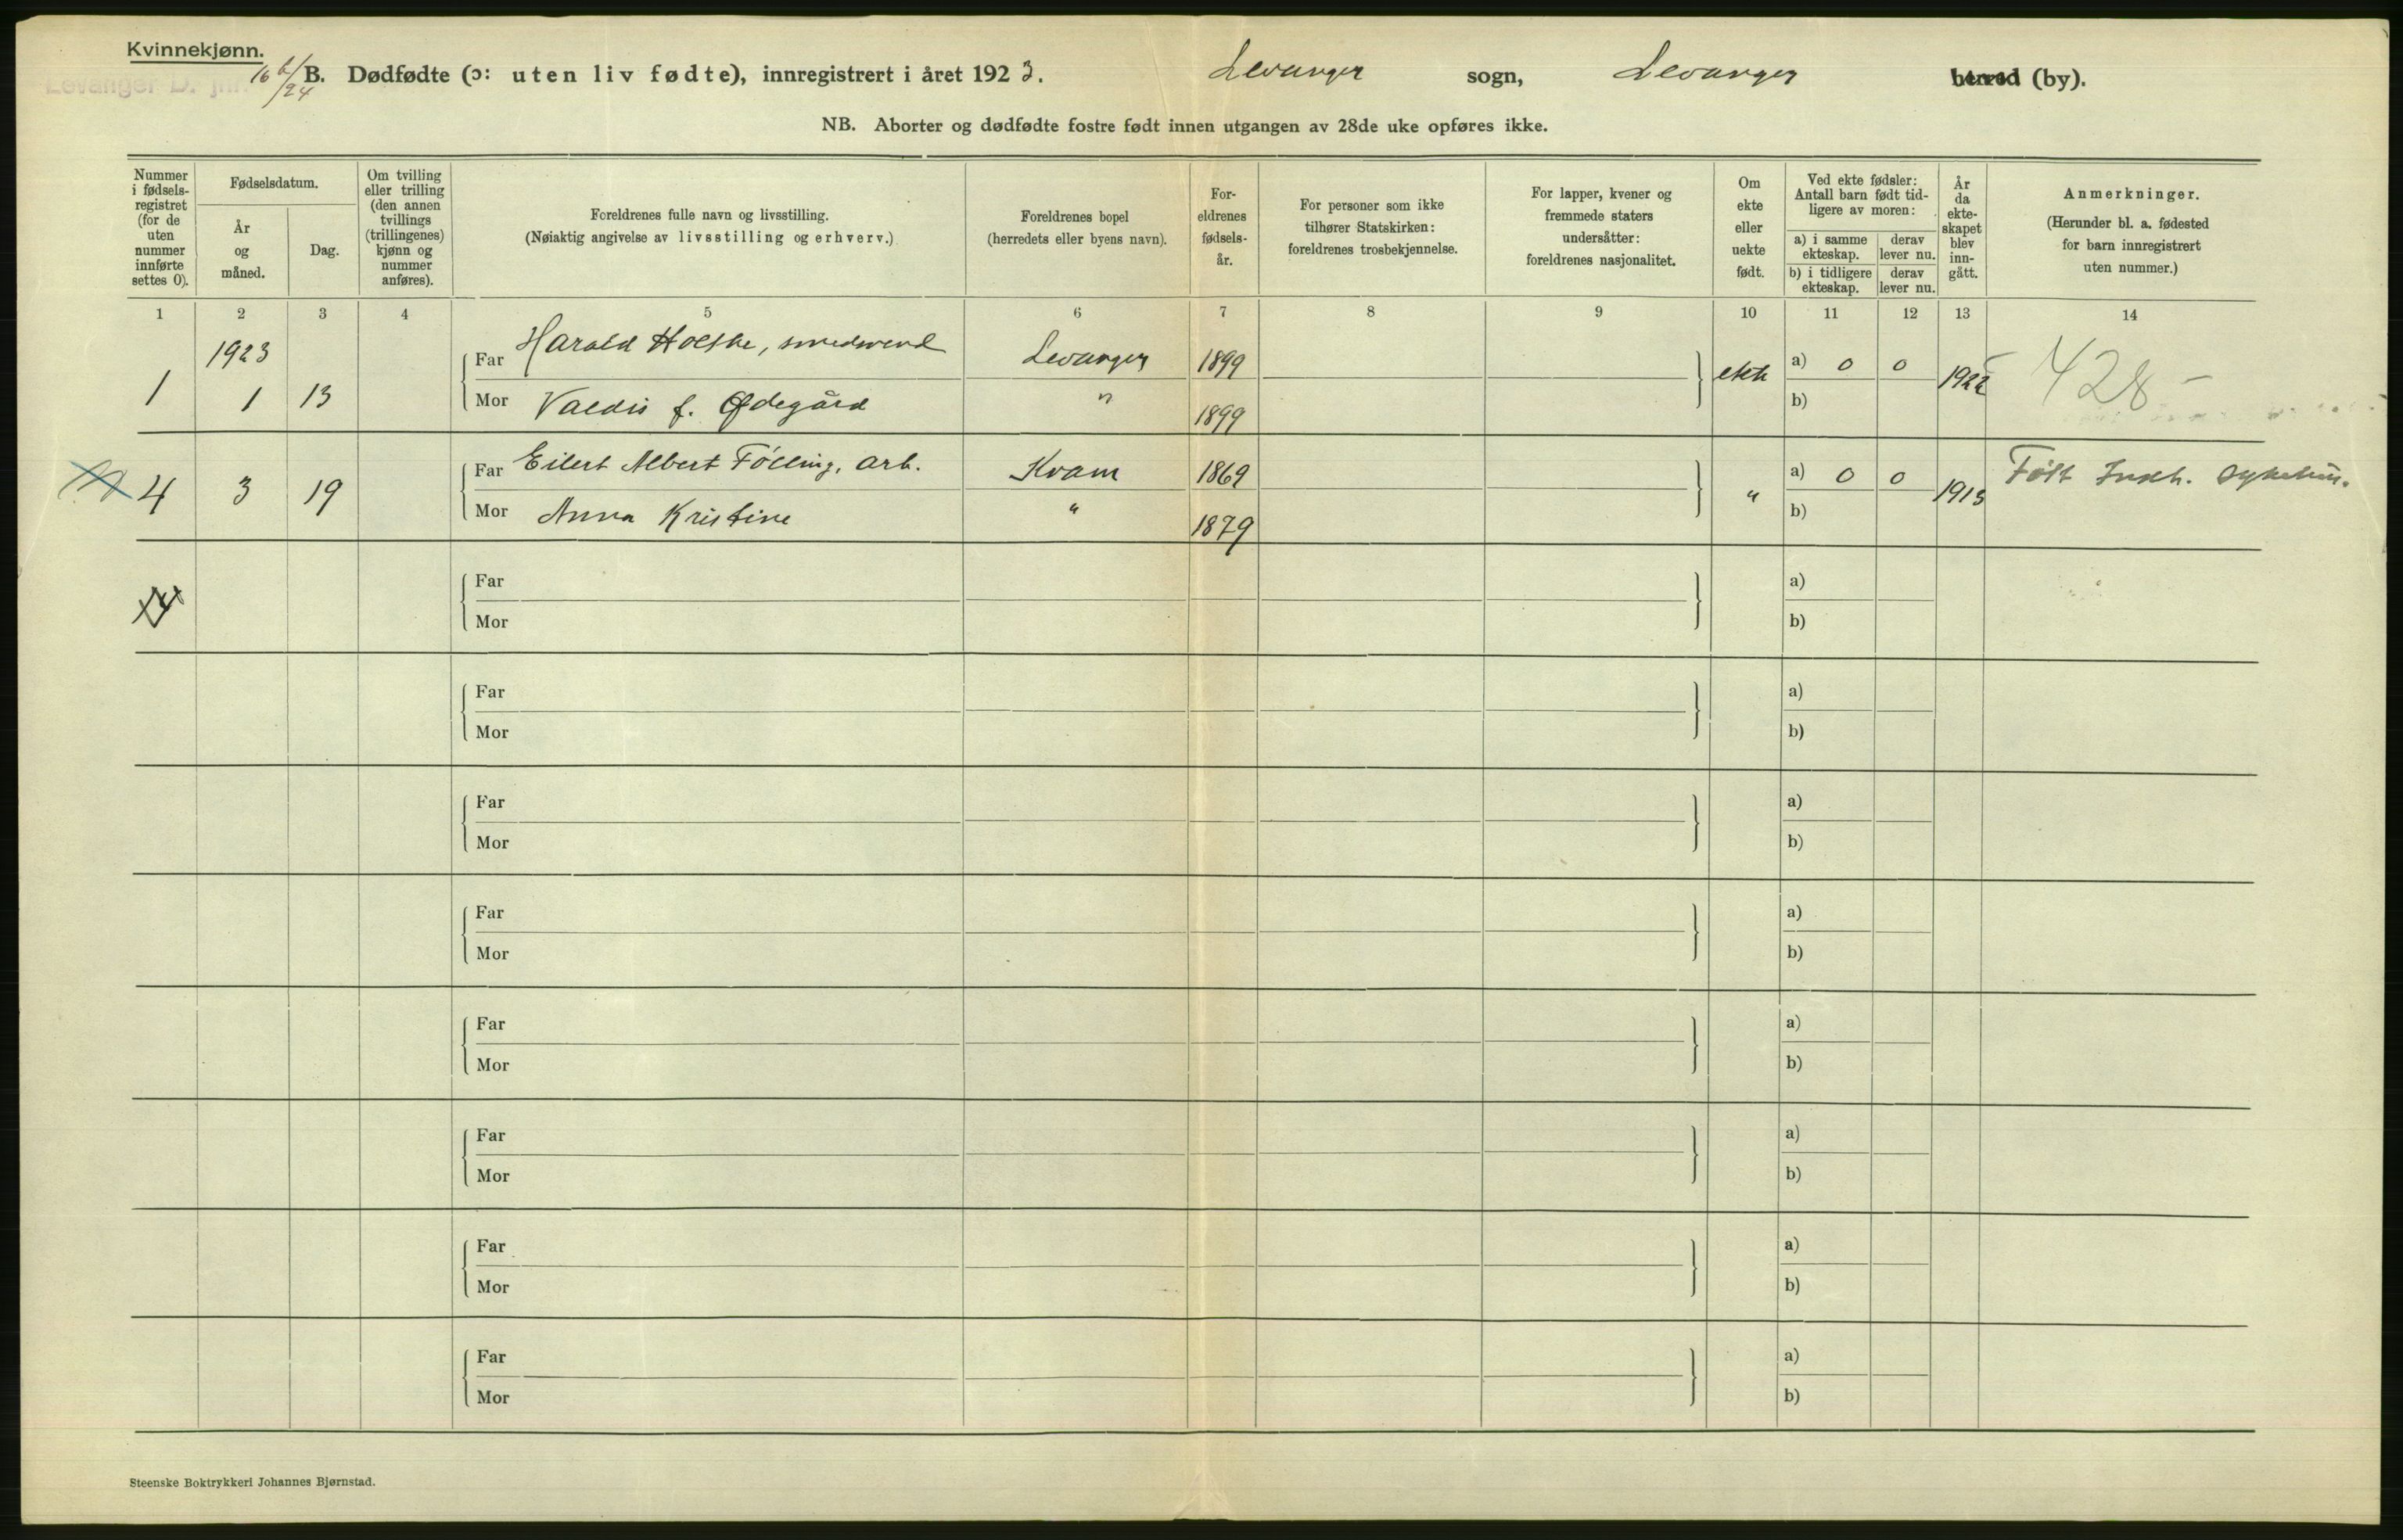 Kvinnekjønn.
Levanger D. jnr. 16 6/24
B. Dødfødte (ɔ: uten liv fødte), innregistrert i året 1923. Levanger sogn, Levanger herred (by).
NB. Aborter og dødfødte fostre født innen utgangen av 28de uke opføres ikke.
Nummer i fødsels-registret (for de uten nummer innførte settes 0).
Fødselsdatum.
År og måned.
Dag.
Om tvilling eller trilling (den annen tvillings (trillingenes) kjønn og nummer anføres).
Foreldrenes fulle navn og livsstilling.
(Nøiaktig angivelse av livsstilling og erhverv.)
Foreldrenes bopel
(herredets eller byens navn).
For-eldrenes fødsels-år.
For personer som ikke tilhører Statskirken: foreldrenes trosbekjennelse.
For lapper, kvener og fremmede staters undersåtter: foreldrenes nasjonalitet.
Om ekte eller uekte født.
Ved ekte fødsler: Antall barn født tid-ligere av moren:
a) i samme ekteskap. derav lever nu.
b) i tidligere ekteskap. derav lever nu.
År da ekte-skapet blev inn-gått.
Anmerkninger.
(Herunder bl. a. fødested for barn innregistrert uten nummer.)
1 2 3 4 5 6 7 8 9 10 11 12 13 14
1923
Far Harald Holske, smedsvend Levanger 1899 a) 0 0
1 1 13 ekte 1922 428 -
Mor Valdis f. Ødegård " 1899 b)
Far Eilert Albert Følling, arb. Kvam 1869 a) 0 0 Født Innh. sykehus.
4 3 19 " 1913
Mor Anna Kristine " 1879 b)
Far a)
4
Mor b)
Far a)
Mor b)
Far a)
Mor b)
Far a)
Mor b)
Far a)
Mor b)
Far a)
Mor b)
Far a)
Mor b)
Far a)
Mor b)
Steenske Boktrykkeri Johannes Bjørnstad.